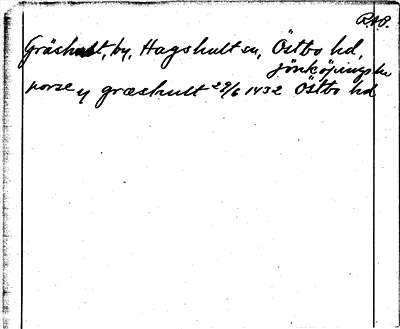 RAP.
Gräshult, by, Hagshult sn, Östbo hd,
Jönköpings län
porse y græshult 29/6 1432 Östbo hd